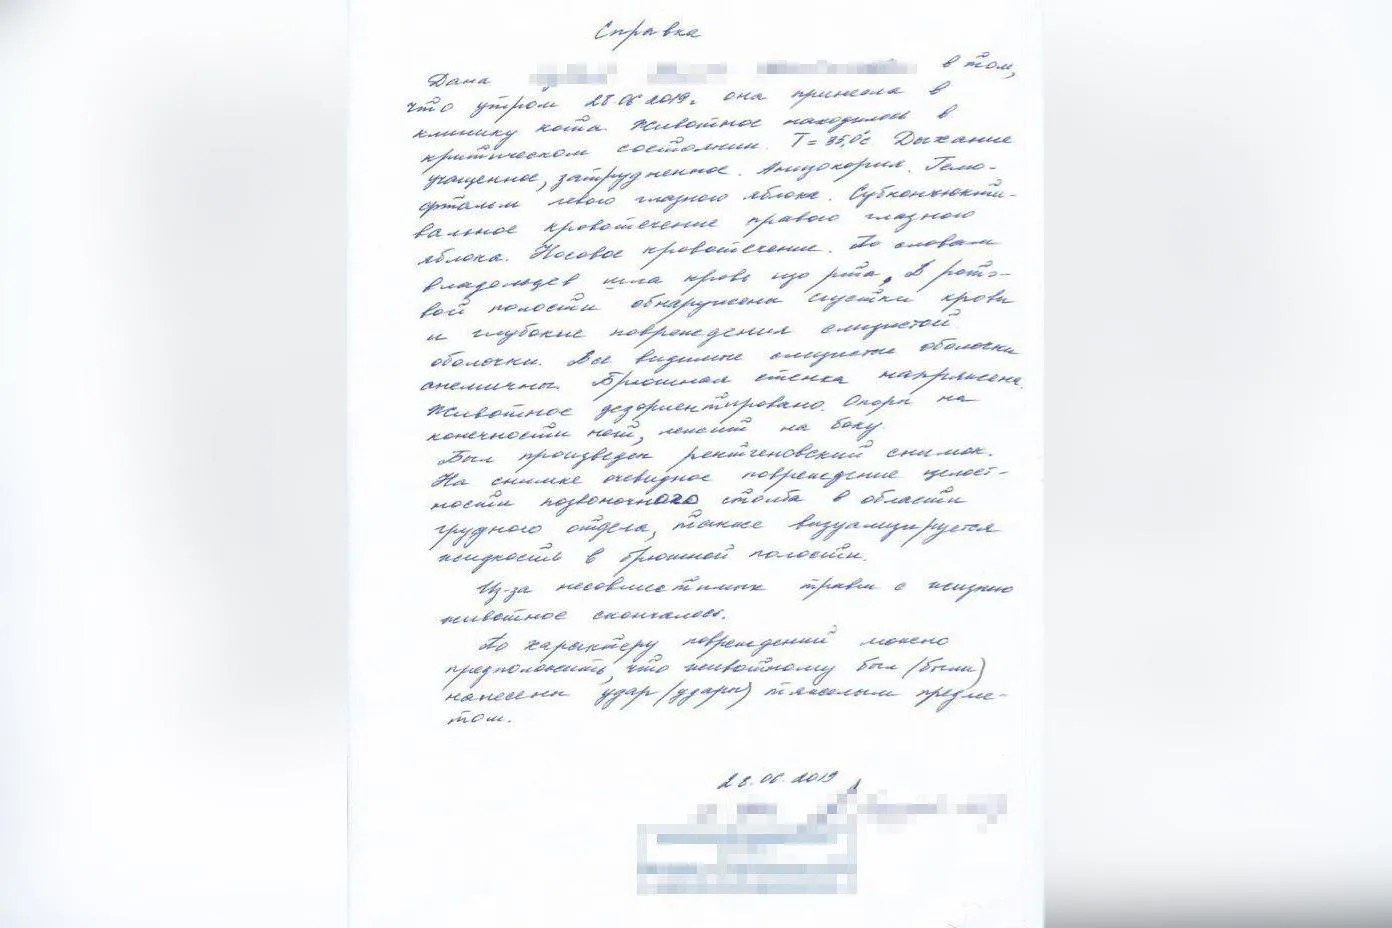 Справка
Дана в том,
что утром 28.06.2019г она принесла в
клинику кота. Животное находилось в
критическом состоянии. T = 35,0°c Дыхание
учащенное, затрудненное. Анизокория. Гемо-
фтальм левого глазного яблока. Субконъюкти-
вальное кровотечение правого глазного
яблока. Носовое кровотечение. По словам
владельцев шла кровь изо рта. В рото-
вой полости обнаружены сгустки крови
и глубокие повреждения слизистой
оболочки. Все видимые слизистые оболочки
анемичны. Брюшная стенка напряжена.
Животное дезориентировано. Опоры на
конечности нет, лежит на боку.
Был произведен рентгеновский снимок.
На снимке очевидное повреждение целост-
ности позвоночного столба в области
грудного отдела, также визуализируется
жидкость в брюшной полости.
Из-за несовместимых травм с жизнью
животное скончалось.
По характеру повреждений можно
предположить, что животному был (были)
нанесены удар (удары) тяжелым предме-
том.
28.06.2019